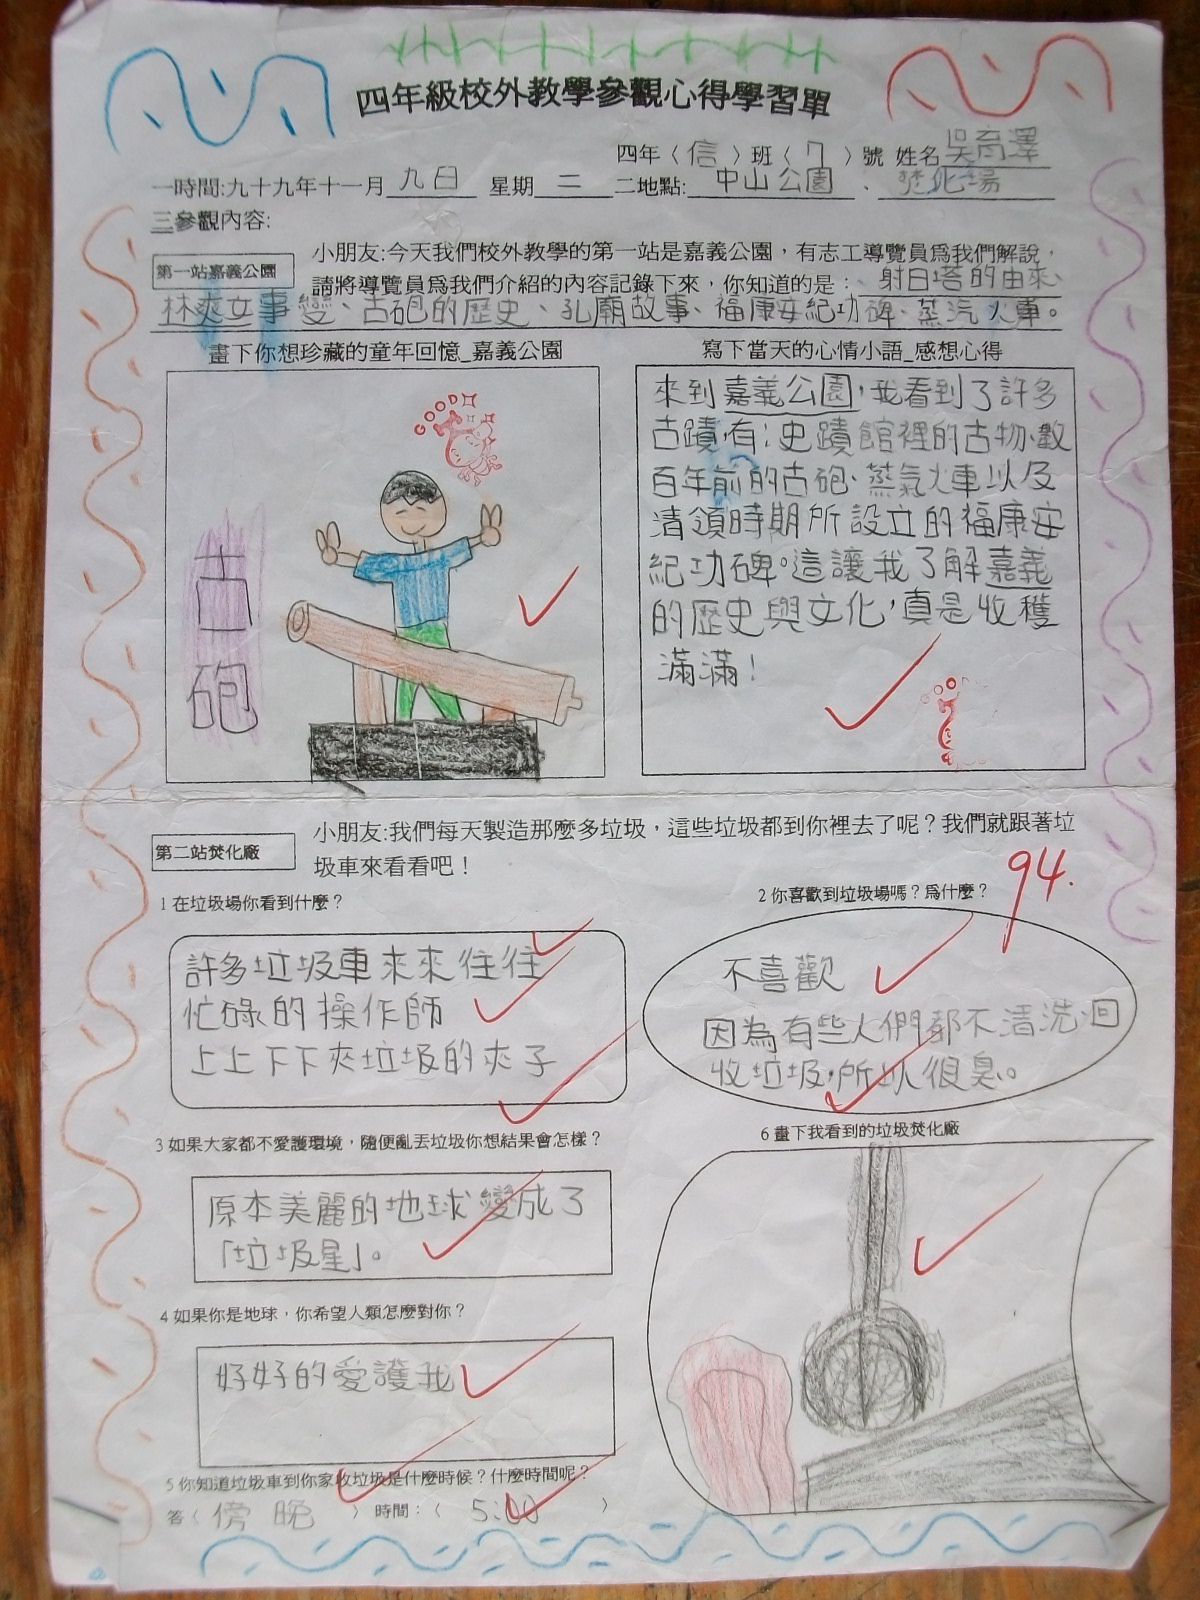 四年級校外教學參觀心得學習單
四年〈信〉班〈7〉號 姓名吳育澤
一時間:九十九年十一月九日 星期二 二地點:中山公園、焚化場
三參觀內容:
第一站嘉義公園
小朋友:今天我們校外教學的第一站是嘉義公園，有志工導覽員為我們解說，
請將導覽員為我們介紹的內容記錄下來，你知道的是：射日塔的由來、
林爽文事變、古砲的歷史、孔廟故事、福康安紀功碑、蒸汽火車。
畫下你想珍藏的童年回憶_嘉義公園
GOOD
古砲
寫下當天的心情小語_感想心得
來到嘉義公園，我看到了許多
古蹟，有：史蹟館裡的古物、數
百年前的古砲、蒸氣火車以及
清領時期所設立的福康安
紀功碑。這讓我了解嘉義
的歷史與文化，真是收穫
滿滿！
第二站焚化廠
小朋友:我們每天製造那麼多垃圾，這些垃圾都到你裡去了呢？我們就跟著垃
圾車來看看吧！
94.
1 在垃圾場你看到什麼？
許多垃圾車來來往往
忙碌的操作師
上上下下夾垃圾的夾子
2 你喜歡到垃圾場嗎？為什麼？
不喜歡
因為有些人們都不清洗回
收垃圾，所以很臭。
3 如果大家都不愛護環境，隨便亂丟垃圾你想結果會怎樣？
原本美麗的地球變成了
「垃圾星」。
4 如果你是地球，你希望人類怎麼對你？
好好的愛護我
5 你知道垃圾車到你家收垃圾是什麼時候？什麼時間呢？
答〈傍晚〉時間：〈5:00〉
6 畫下我看到的垃圾焚化廠